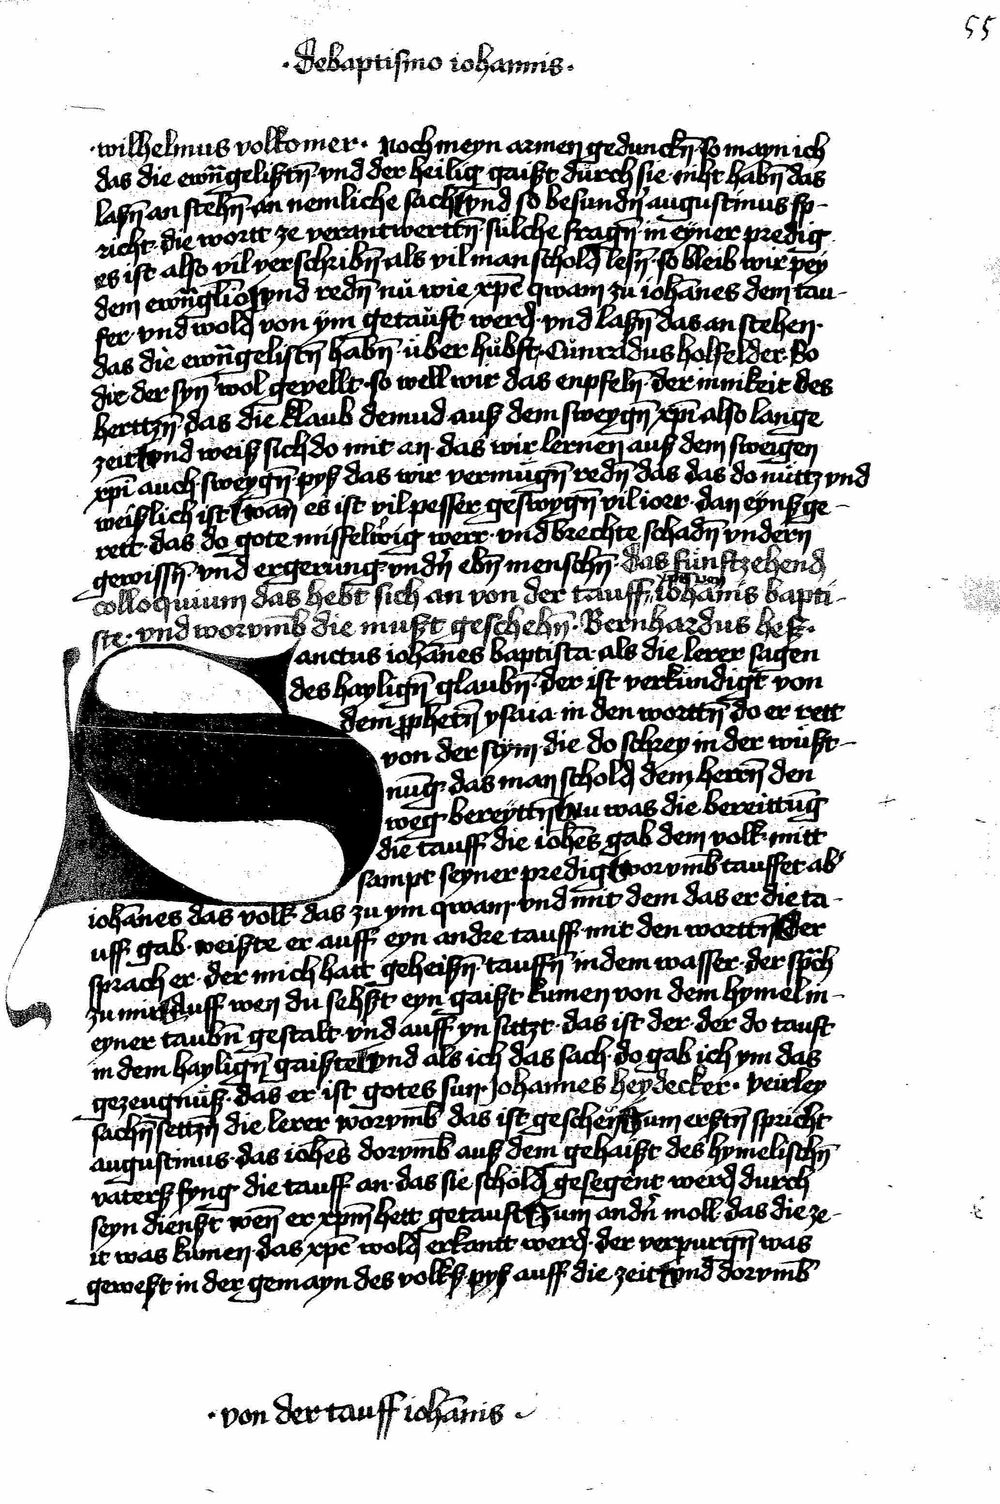 55
·de baptismo iohannis·
·wilhelmus volkomer· Noch meyn armen geduncks̄ So mayn ich
das die ewāgelistn̄ vnd der heilig gaist durch sie niht habn̄ das
lasn̄ an stehn̄ an nemliche sach vnd so besundr̄ augustinus sp-
richt die wortt ze verantwerttn̄ sulche fragn̄ in eyner predig
es ist also vil verschribn̄ als vil man schold lesn̄ So bleib wir pey
dem ewāgliō vnd redn̄ nu wie xp̄c qwam zu ioh̄anes dem tau-
fer vnd wold von ym getauft werd vnd lasn̄ das an stehen·
das die ewāgelistn̄ habn̄ über hübst· Cunradus holfelder So
die der syn̄ wol gevellt so well wir das enpfeln̄ der innikeit des
herttzn̄ das die klaub demud auß dem sweygn̄ xp̄i also lange
zeit vnd weiß sich do mit an das wir lernen auß dem sweigen
xp̄i auch sweygn̄ pyß das wir vermügn̄ redn̄ das das do nüttz vnd
weißlich ist wan̄ es ist vil pesser geswygn̄ vil ioer dan eynß ge-
rett das do gote missfelwig werr vnd brechte schadn̄ vndern
gewissn̄ vnd ergerung vndr̄ ebn̄ menschn̄· das fünftzehend
colloquium das hebt sich an von der tauff ioh̄anis bapti-
ste· vnd worvmb̄ die must geschehn̄· Bernhardus heß·
Sanctus ioh̄anes baptista als die lerer sagen
des haylign̄ glaubn̄ der ist verkündigt von
dem ꝓphetn̄ ysaia in den worttn̄ do er rett
von der stym die do schrey in der wüst-
nūg das man schold dem herrn̄ den
weg bereyttn̄ Nu was die bereittūg
die tauff die ioh̄es gab dem volk mitt
sampt seyner predig worvmb̄ tauffet ab'
ioh̄anes das volk das zu ym qwam vnd mit dem das er die ta-
uff gab weiste er auff eyn andre tauff mit den worttn̄ der
sprach er der mich hatt geheißn̄ tauffn̄ in dem wasser der sp̄ch
zu mir auff wen du sehst eyn gaist kumen von dem hymel in-
eyner taubn̄ gestalt vnd auff yn sittzt das ist der der do tauft
in dem haylign̄ gaiste vnd als ich das sach do gab ich ym das
gezeugnüß das er ist gotes sun· Johannes heydecker· veirley
sachn̄ settzn̄ die lerer worvmb̄ das ist geschen̄ zum erstn̄ spricht
augustinus das ioh̄es dorvmb̄ auß dem gehaist des hymelischn̄
vaterß fyng die tauff an das sie schold gesegent werd durch
seyn dienst wen̄ er xp̄m hett getauft Zum andr̄n moll das die ze-
it was kumen das xp̄c wold erkantt werd der verpurgn̄ was
gewest in der gemayn des volkß pyß auff die zeit vnd dorvmb̄
·von der tauff ioh̄anis·